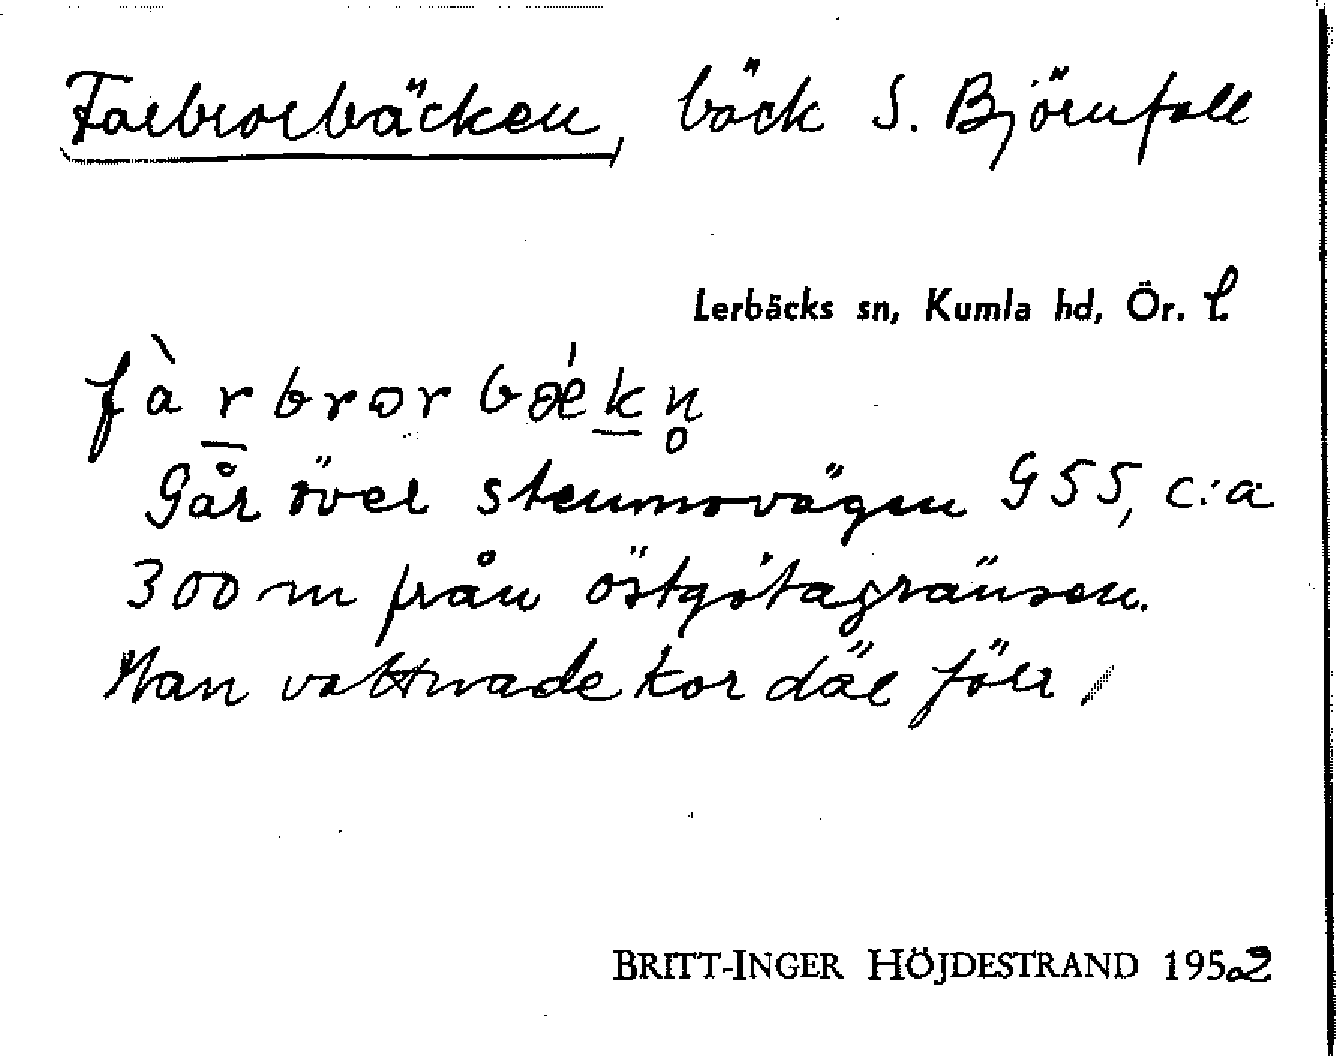 Farbrorbäcken, bäck S. Björnfall
Lerbäcks sn, Kumla hd, Ör. l.
fàrbrorbǽkn̥
Går över stenmovägen G55, c:a
300 m från östgötagränsen.
Man vattnade kor där förr.
BRITT-INGER HÖJDESTRAND 1952